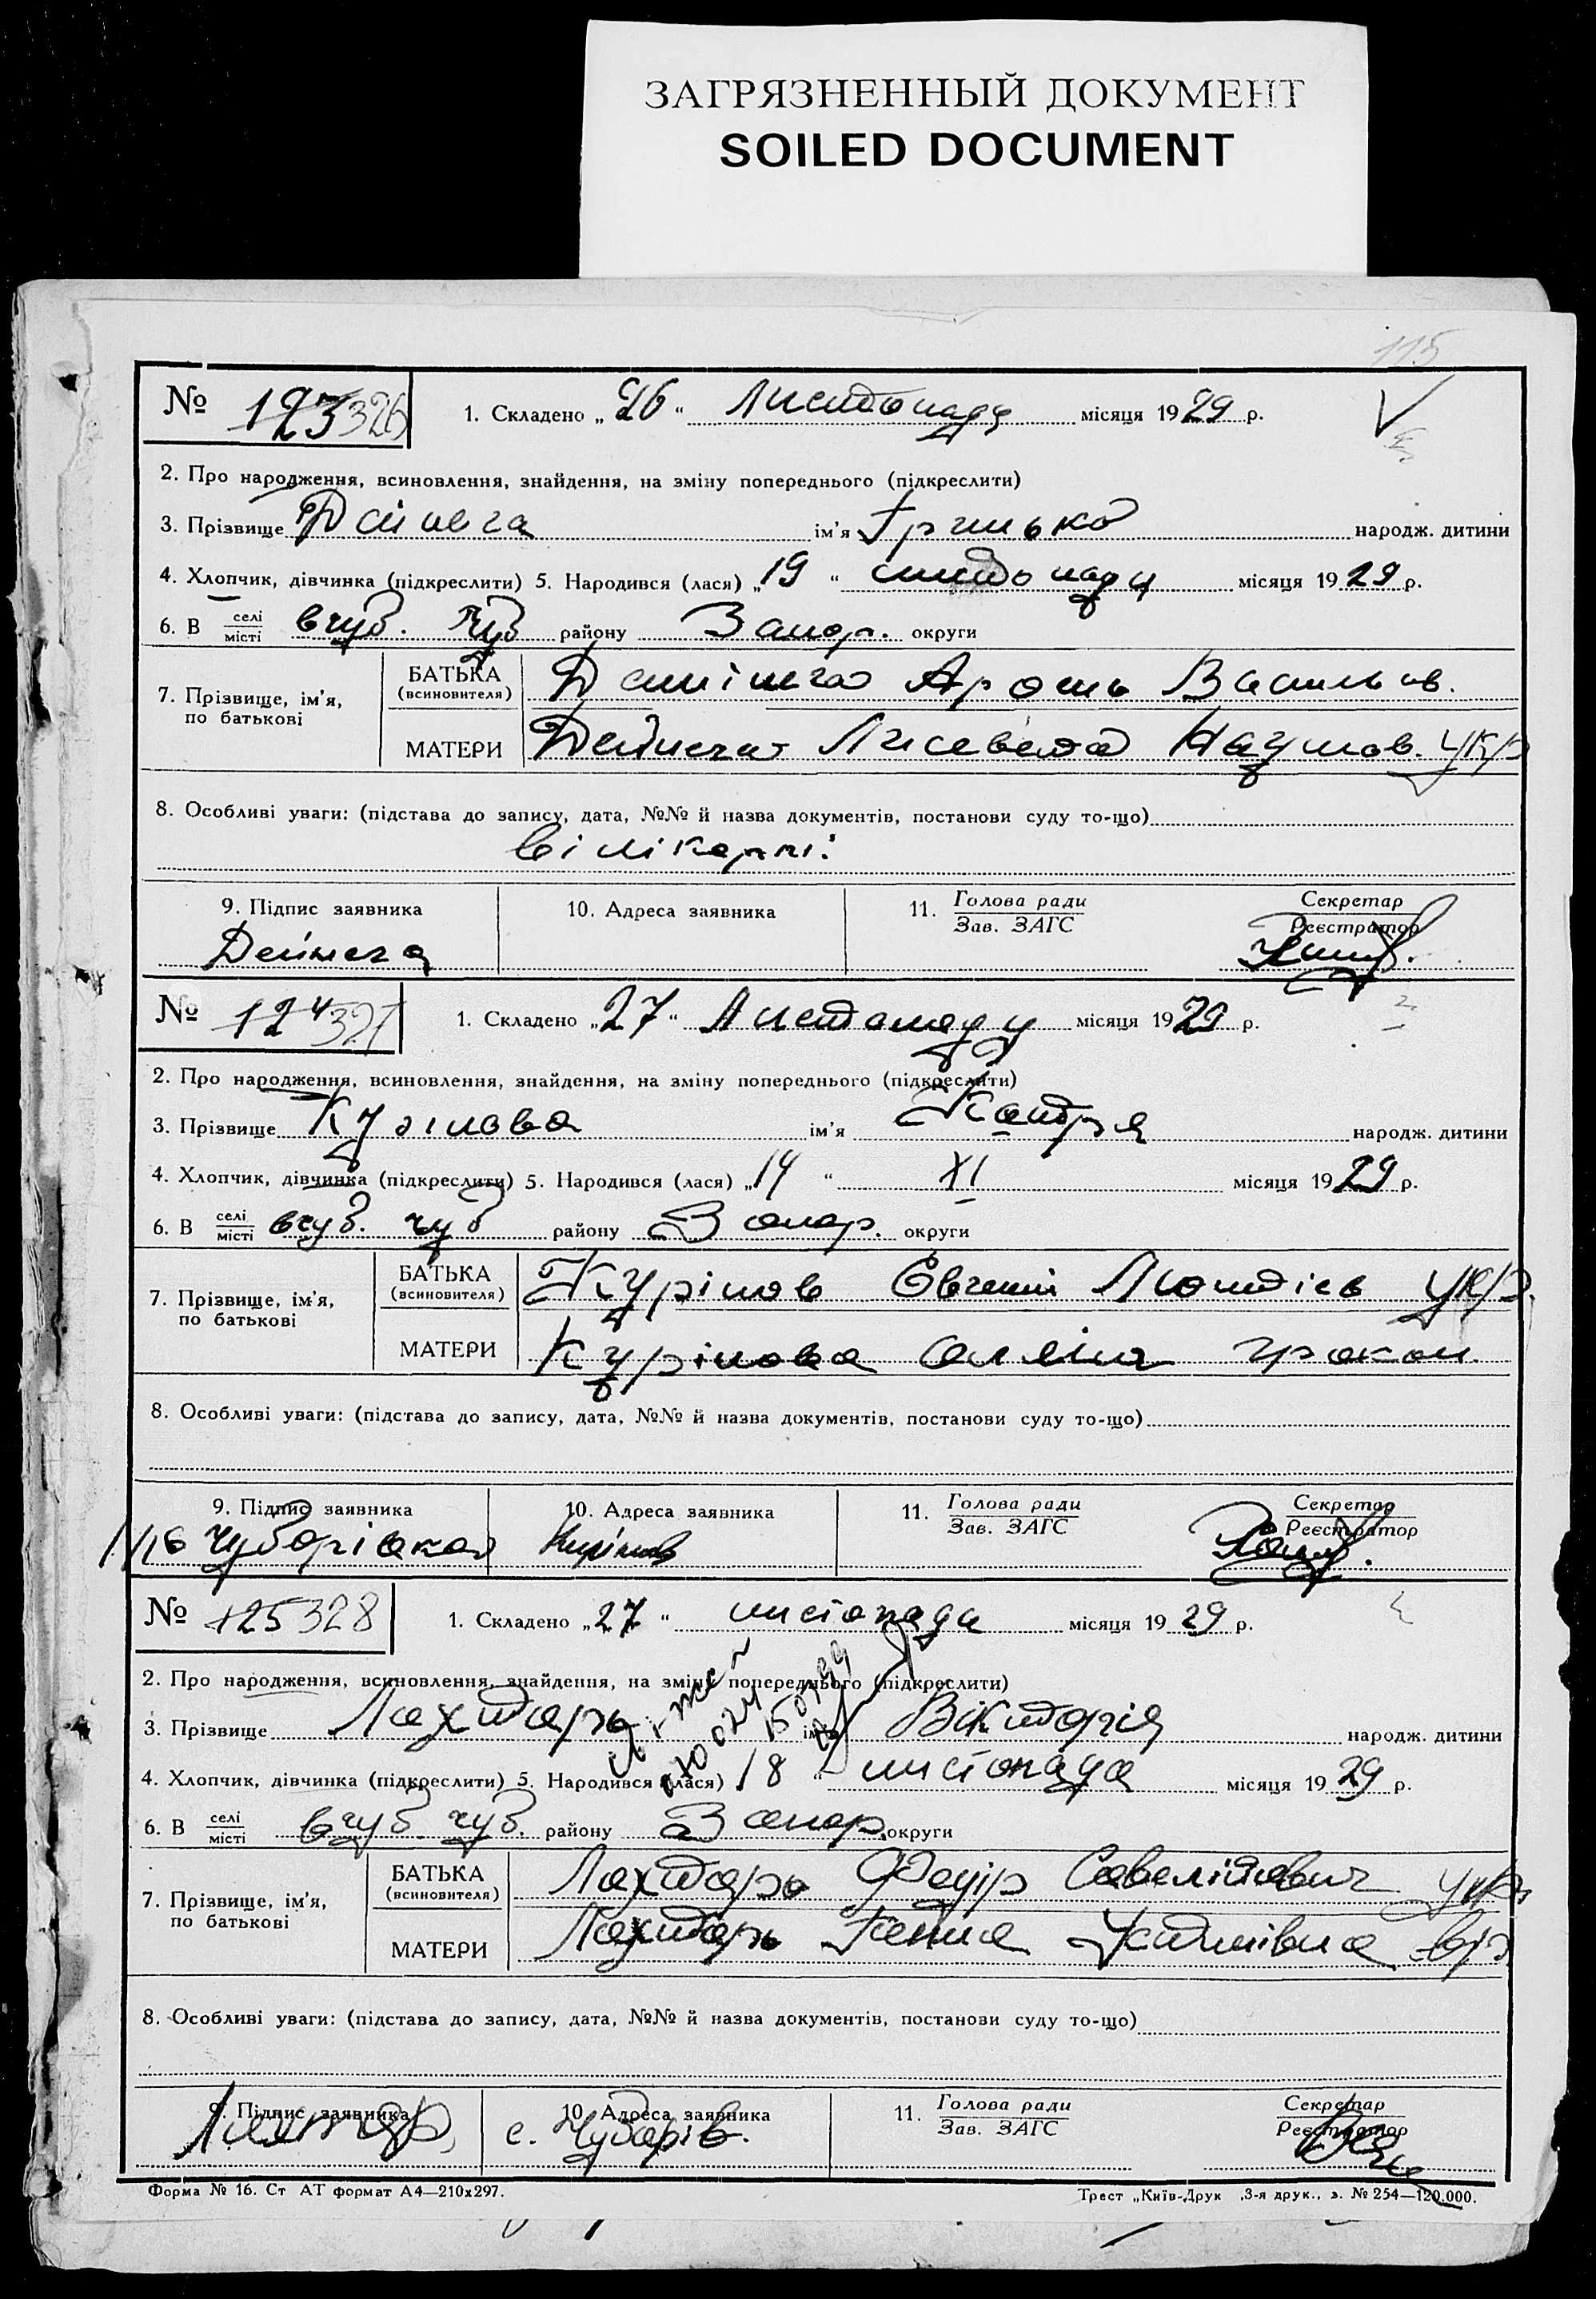 ЗАГРЯЗНЕННЫЙ ДОКУМЕНТ
SOILED DOCUMENT
115
№ 123 326
1. Складено „26“ Листопаду місяця 1929 р.
2. Про народження, всиновлення, знайдення, на зміну попереднього (підкреслити)
3. Прізвище ім'я Грицько народж. дитини
4. Хлопчик, дівчинка (підкреслити) 5. Народився (лася) „19“ листопаду місяця 1929 р.
6. В селі/місті вчуб. Чуб району Запор. округи
7. Прізвище, ім'я, по батькові
БАТЬКА (всиновителя) Васильов.
МАТЕРИ Дейнега Лисевета Наумов. укр
8. Особливі уваги: (підстава до запису, дата, №№ й назва документів, постанови суду то-що)
9. Підпис заявника
10. Адреса заявника
11. Голова ради
Зав. ЗАГС
Секретар
Реєстратор
Дейнега
№ 124 327
1. Складено „27“ Листопаду місяця 1929 р.
2. Про народження, всиновлення, знайдення, на зміну попереднього (підкреслити)
3. Прізвище Курінова ім'я народж. дитини
4. Хлопчик, дівчинка (підкреслити) 5. Народився (лася) „14“ XI місяця 1929 р.
6. В селі/місті вчуб. чуб району Запор. округи
7. Прізвище, ім'я, по батькові
БАТЬКА (всиновителя) Курінов Євгений укр.
МАТЕРИ Курінова
8. Особливі уваги: (підстава до запису, дата, №№ й назва документів, постанови суду то-що)
9. Підпис заявника
10. Адреса заявника
11. Голова ради
Зав. ЗАГС
Секретар
Реєстратор
Курінов
№ 125 328
1. Складено „27“ листопада місяця 1929 р.
2. Про народження, всиновлення, знайдення, на зміну попереднього (підкреслити)
3. Прізвище Лахтарь ім'я Вікторія народж. дитини
4. Хлопчик, дівчинка (підкреслити) 5. Народився (лася) 18 “ листопада місяця 1929 р.
6. В селі/місті вчуб чуб. району Запор. округи
7. Прізвище, ім'я, по батькові
БАТЬКА (всиновителя) Лахтарь Федір Савелійович укр
МАТЕРИ Лахтарь Ганна Устимівна
8. Особливі уваги: (підстава до запису, дата, №№ й назва документів, постанови суду то-що)
9. Підпис заявника
10. Адреса заявника
11. Голова ради
Зав. ЗАГС
Секретар
Реєстратор
с. Чубарів.
Форма № 16. Ст АТ формат А4—210х297.
Трест „Київ-Друк ,3-я друк., з. № 254—120.000.